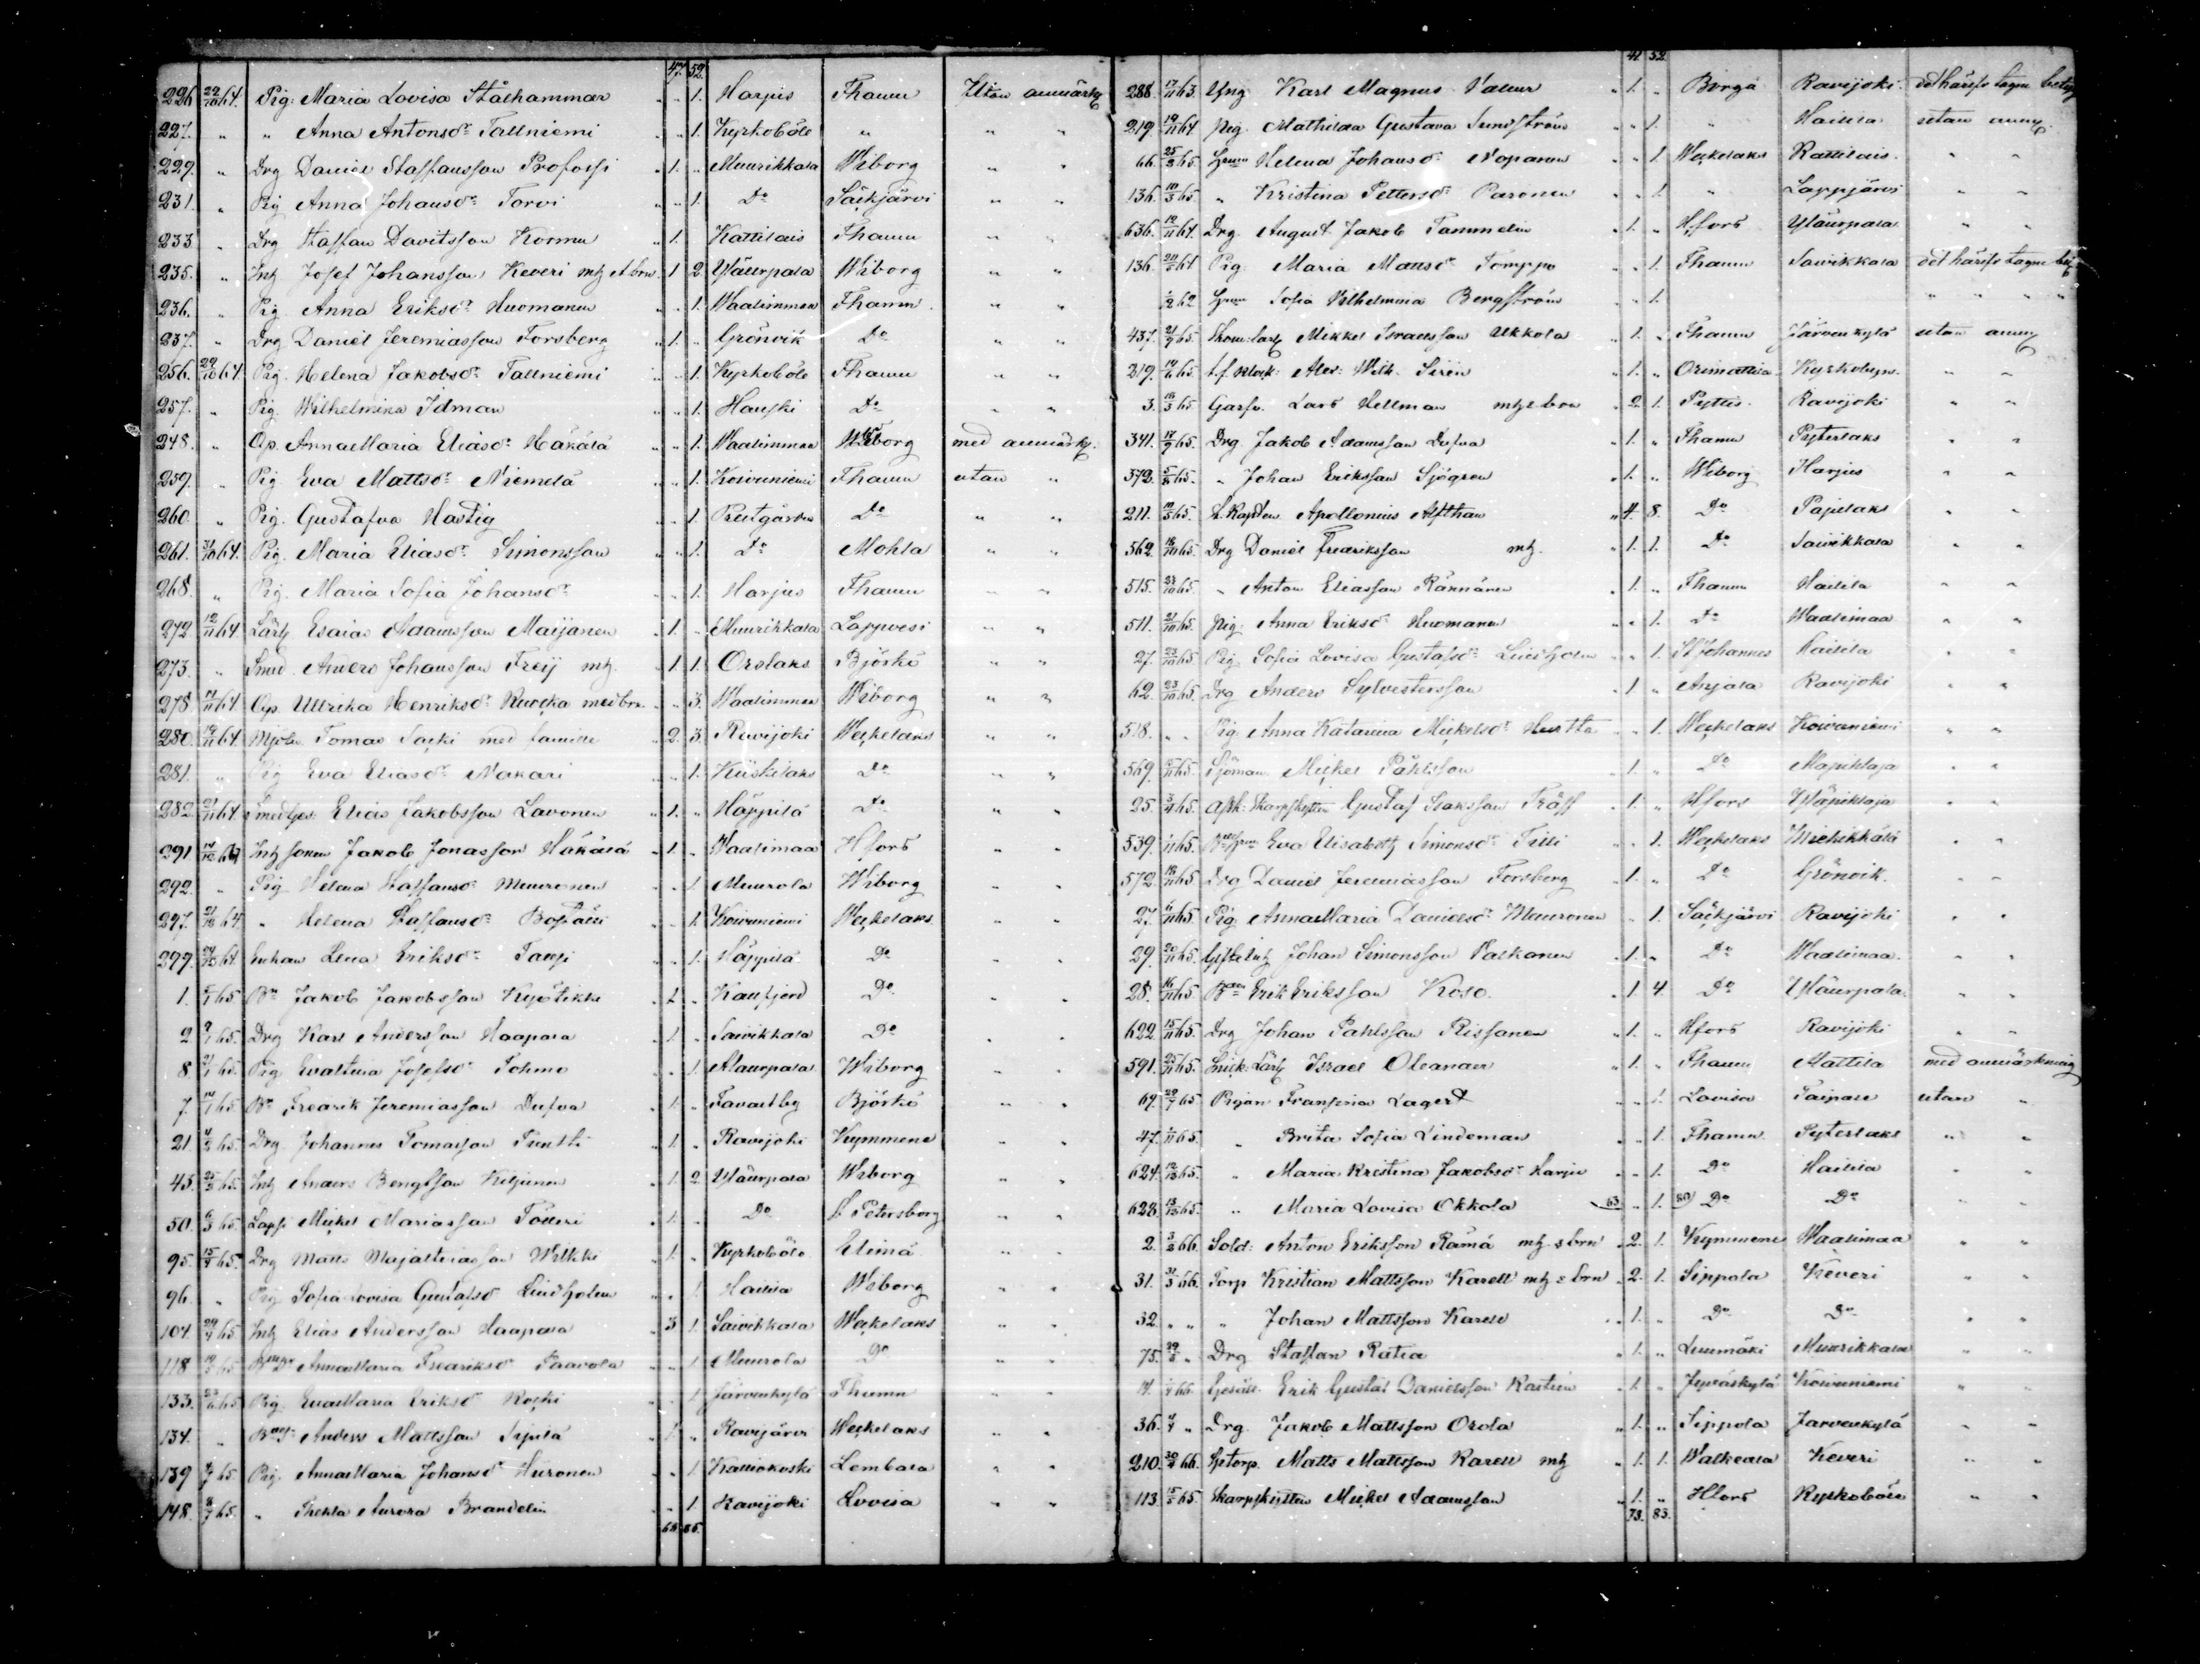 47. 52.
226. 22/10 64. Pig: Maria Lovisa Stålhammar " 1. Harjus Fhamn Utan anmärkg
227. " " Anna Antonsdr Tallniemi " 1. Kyrkoböle " " "
229. " Drg Daniel Staffansson Profossi 1. " Muurikkala Wiborg " "
231. " Pig Anna Johansdr Torvi " 1. Do Säckjärvi " "
233 " Drg Staffan Davitsson Kormu 1. Kattilais Fhamn " "
235. " Inh Josef Johansson Keveri mh et brn 1 2. Yläurpala Wiborg " "
236. " Pig Anna Eriksdr Huomanen " 1. Waalimmaa Fhamn " "
237. " Drg Daniel Jeremiasson Forsberg 1. " Grönvik Do " "
256. 29/10 64. Pig. Helena Jakobsdr Tallniemi " 1. Kyrkoböle Fhamn " "
257. " Pig. Wilhelmina Idman " 1. Do " "
248. " Qp. AnnaMaria Eliasdr Häkälä " 1. Waalimmaa Wiborg med anmärkg.
259. " Pig Eva Mattsdr Niemelä " 1. Koivuniemi Fhamn utan "
260. " Pig. Gustafva Hastig " 1. Prestgården Do " "
261. 31/10 64. Pig. Maria Eliasdr Simonsson " 1. Do Mohla " "
268. " Pig. Maria Sofia Johansdr " 1. Harjus Fhamn " "
272 12/11 64. Lärl. Esaias Adamsson Maijanen 1. " Muurikkala Lappvesi " "
273. " Smed. Anders Johansson Freij mh. 1. 1. Orslaks Björkö " "
278. 14/11 64. Qp Ullrika Henriksdr Ruocka med brn " 3. Waalimmaa Wiborg " "
280. 19/11 64. Mjöln. Tomas Sacki med familie 2. 3. Ravijoki Weckelaks " "
281. " Pig Eva Eliasdr Nakari " 1. Kiiskilaks Do " "
282. 21/11 64. Smedges: Elias Jakobsson Lavonen 1. " Häppilä Do " "
291. 14/12 64 Inh sonen Jakob Jonasson Häkälä 1. " Waalimaa Hfors " "
292. " Pig Helena Staffansdr Muuronen " 1. Muurola Wiborg " "
297. 21/12 64. " Helena Staffansdr " 1. Koivuniemi Weckelaks " "
299. 24/12 64. Enkan Lena Eriksdr " 1. Häppilä Do " "
1. 5/1 65 Bn Jakob Jakobsson Kyöstikki 1. " Do " "
2. 9/1 65. Drg Karl Andersson Haapala 1. " Saivikkala Do " "
8. 21/1 65. Pig Evastina Josefsdr Pohmo " 1. Alaurpala Wiborg " "
7. 14/1 65. Bn Fredrik Jeremiasson Dufva 1. " Tavastby Björkö " "
21. 4/2 65. Drg. Johannes Tomasson Puntti 1. " Ravijoki Kymmene " "
45. 25/2 65. Inh Anders Bengtsson Kiljunen 1. 2. Yläurpala Wiborg " "
50. 6/3 65. Lapp. Mickel Mariasson 1. " Do S. Petersborg " "
95. 15/4 65. Drg Matts Majastinasson Wilkki 1. " Kyrkoböle Elimä " "
96. " Pig Sofia Lovisa Gustafsdr Lindholm " 1. Hailila Wiborg " "
104. 29/4 65 Inh Elias Andersson Haapala 3. 1. Saivikkala Weckelaks " "
118. 19/5 65. AnnaMaria Fredriksdr Paavola " 1. Muurola Do " "
133. 23/6 65 Pig EvaMaria Eriksdr " 1. Järvenkylä Fhamn " "
134. " Anders Mattsson Sipilä 1. " Ravijärvi Weckelaks " "
139 1/7 65. Pig. AnnaMaria Johansdr Hiironen " 1. Kalliokoski Lembala " "
148. 8/7 65. " Thekla Aurora Brandelin " 1. Ravijoki Lovisa " "
60. 85.
47. 52.
288. 17/11 63. Yng Karl Magnus 1. " Borgå Ravijoki det härifr. tagne betyg
219 19/11 64 Pig. Mathilda Gustava Sundström " 1. " Hailila utan anmg.
66. 25/3 65. Hrun Helena Johansdr Noparen " 1. Weckelaks Kattilais. " "
136. 10/3 65. " Kristina Pettersdr Paronen " 1. " Lappjärvi " "
636. 12/11 64. Drg. August Jakob Tammelin 1. " Hfors Yläurpala " "
136. 20/5 64 Pig Maria Mattsdr Pomppo " 1. Fhamn Saivikkala det härifr. tagne bet
1/2 62 Hrun Sofia Vilhelmina Bergström " 1. " " "
437. 21/9 65. Skom: lärl Mikkel Israelsson Ukkola 1. " Fhamn Järvenkylä utan anmg
219. 14/6 65. t.f. klock: Alex: Wilh. Sirén 1. " Orimattila Kyrkobyn. " "
3. 18/3 65. Garfv. Lars Hellman mh et brn 2. 1. Pyttis. Ravijoki " "
341. 17/9 65. Drg. Jakob Adamsson Dufva 1. " Fhamn Pyterlaks " "
372. 5/8 65. " Johan Eriksson Sjögren 1. " Wiborg Harjus " "
211. 10/5 65. St. Kapten Apollonius Alfthan 4. 8. Do Papilaks " "
562. 18/10 65. Drg Daniel Fredriksson mh. 1. 1. Do Saivikkala " "
515. 28/10 65. " Anton Eliasson Kärnänen 1. " Fhamn Hailila " "
511. 21/10 65. Pig. Anna Eriksdr Huomanen " 1. Do Waalimaa " "
27. 23/10 65. Pig. Sofia Lovisa Gustafsdr Lindholm " 1. St Johannes Hailila " "
62. 23/10 65. Drg Anders Sylvestersson 1 " Anjala Ravijoki " "
518. " " Pig. Anna Katarina Mickelsdr Hurtta " 1. Weckelaks Koivuniemi " "
569. 15/11 65. Sjöman Mickel Påhlsson 1. " Do Mapihlaja " "
25. 3/4 65. Afsk: Skarpskytten Gustaf Isaksson Träff 1. " Hfors Yläpihlaja " "
539. 1/11 65. Eva Elisabeth Simonsdr Tilli " 1. Weckelaks Miehikkälä " "
572. 18/11 65 Drg Daniel Jeremiasson Forsberg 1. " Do Grönvik. " "
27. 6/11 65. Pig AnnaMaria Danielsdr Muuronen " 1. Säckjärvi Ravijoki " "
29. 20/11 65. Johan Simonsson Paskanen 1. " Do Waalimaa. " "
28. 16/11 65. Erik Eriksson Koso. 1. 4. Do Yläurpala. " "
622. 15/11 65. Drg Johan Pahlsson Rissanen 1. " Hfors Ravijoki " "
591. 25/11 65. Snick: Lärl Israel Oleander 1. " Fhamn Mattila med anmärkning
69. 29/7 65. Pigan Fransina Lagert " 1. Lovisa Taipale utan "
47. 1/11 65. " Brita Sofia Lindeman " 1. Fhamn Pyterlaks " "
624. 12/12 65. " Maria Kristina Jakobsdr Harju " 1. Do Hailila " "
628. 13/12 65. " Maria Lovisa Okkola 63. " 1. 80) Do Do " "
2. 3/2 66. Sold: Anton Eriksson Rämä mh et brn 2. 1. Kymmene Waalimaa " "
31. 31/3 66. Torp Kristian Mattsson Karell mh et brn 2. 1. Sippola Keveri " "
32. " " " Johan Mattsson Karell 1. " Do Do " "
75. 29/3 " Drg Staffan Ratia 1. " Luumäki Muurikkala " "
14. 1/4 66. Gesäll. Erik Gustaf Danielsson Kastrén 1. " Jyväskylä Koivuniemi " "
36. 4/4 " Drg. Jakob Mattsson Orola 1. " Sippola Järvenkylä " "
210. 30/4 66. Matts Mattsson Karell mh 1. 1. Walkeala Keveri " "
113. 15/5 65 Skarpskytten Mickel Adamsson 1. " Hfors Kyrkoböle " "
73. 83.